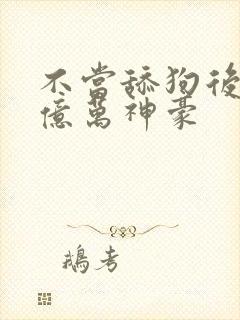 不當舔狗後
億萬神豪
鵝考